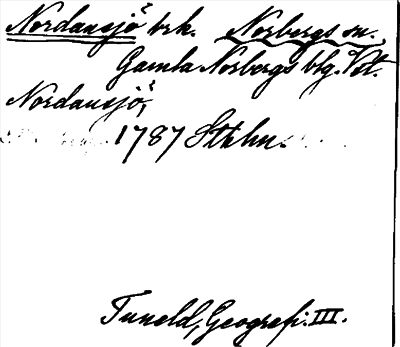 Nordansjö trk. Norbergs sn.,
Gamla Norbergs blg. Vst.
Nordansjö,
1787 Sthlm.
Tuneld, Geografi. III.